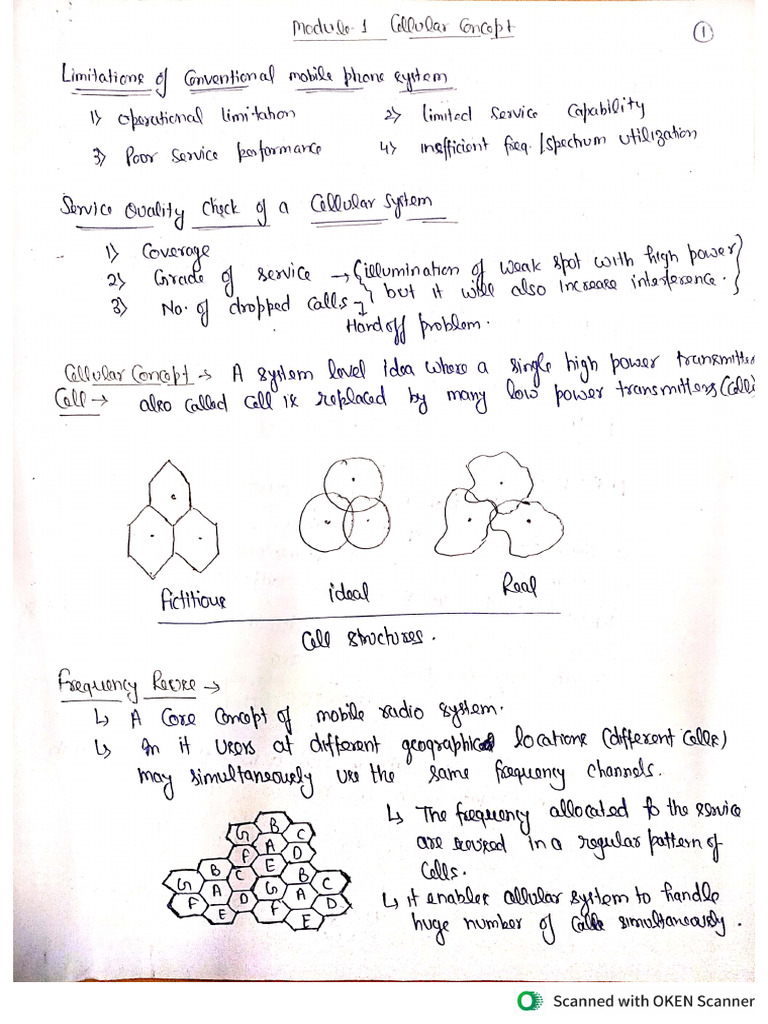 Module-1 Cellular Concept
1
Limitations of Conventional mobile phone system
1) Operational limitation 2) Limited Service Capability
3) Poor Service performance 4) Inefficient freq./Spectrum utilization
Service Quality Check of a Cellular System
1) Coverage
2) Grade of service → {illumination of weak spot with high power
but it will also increase interference.}
3) No. of dropped calls
Handoff problem.
Cellular Concept → A system level idea where a single high power transmitter
Cell → also called cell is replaced by many low power transmitters (Cells
fictitious ideal Real
Cell structures.
Frequency Reuse →
↳ A Core Concept of mobile radio system.
↳ In it users at different geographical locations (different cells)
may simultaneously use the same frequency channels.
↳ The frequency allocated to the service
are reused in a regular pattern of
Cells.
↳ it enables cellular system to handle
huge number of calls simultaneously.
B
G C
A
F D
B E B
G C G C
A A
F D F D
E E
Scanned with OKEN Scanner